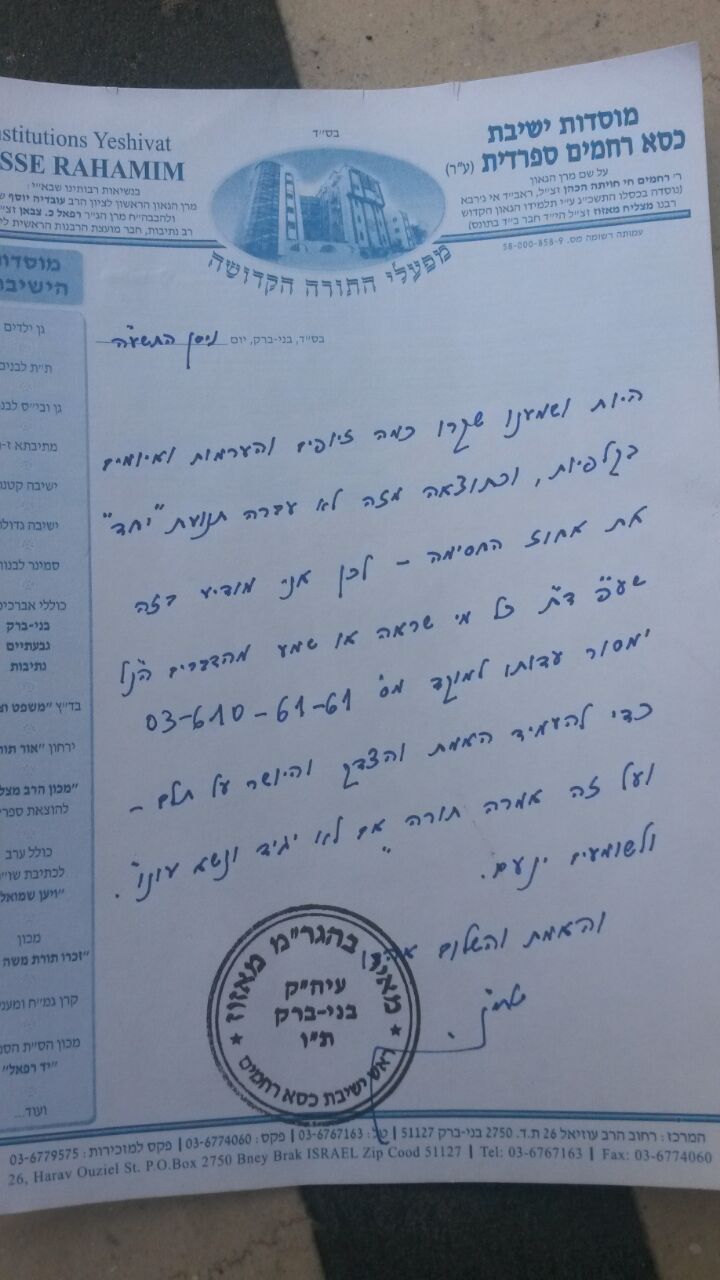 בס"ד
nstitutions Yeshivat
SSE RAHAMIM
בנשיאות רבותינו שבא"י:
מרן הגאון הראשון לציון הרב עובדיה יוסף
ולהבבה"ח מרן הגר"ר רפאל כ. צבאן
רב נתיבות, חבר מועצת הרבנות הראשית
מוסדות ישיבת
כסא רחמים ספרדית (ע"ר)
על שם מרן הגאון
ר' רחמים חי חויתה הכהן זצ"ל, ראב"ד אי ג'רבא
(נוסדה בכסלו התשכ"ג ע"י תלמידו הגאון הקדוש
רבנו מצליח מאזוז זצ"ל הי"ד חבר ב"ד בתונס)
עמותה רשומה מס. 58-000-858-9
מפעלי התורה הקדושה
מוסדות
הישיבה
גן ילדים
ת"ת לבנים
גן ובי"ס לבנ
מתיבתא
ישיבה קטנ
ישיבה גדול
סמינר לבנו
כוללי אברכי
בני-ברק
גבעתיים
נתיבות
בד"ץ "משפט
ירחון "אור תור
"מכון הרב מצל
להוצאת ספרי
כולל ערב
לכתיבת
"ויען שמואל
מכון
"זכרו תורת משה
קרן גמ"ח
מכון
"יד רפאל"
ועוד...
בס"ד, בני-ברק, יום ניסן התשע"ה
היות ושמענו שקרו כמה זיופים והערמות ואיומים
בקלפיות, וכתוצאה מזה לא עברה תנועת "יחד"
את אחוז החסימה – לכן אני מודיע בזה
שע"פ ד"ת כל מי שראה או שמע מהדברים הנ"ל
ימסור עדותו למוקד מס' 03-610-61-61
כדי להעמיד האמת והצדק והיושר על תלם –
ועל זה אמרה תורה "אם לא יגיד ונשא עונו".
ולשומעים ינעם.
והאמת והשלום
מאיר בהגר"מ מאזוז
עיה"ק
בני-ברק
ת"ו
ראש ישיבת כסא רחמים
המרכז: רחוב הרב עוזיאל 26 ת.ד. 2750 בני-ברק 51127 | טל: 03-6767163 | פקס: 03-6774060 | פקס למזכירות: 03-6779575
26, Harav Ouziel St. P.O.Box 2750 Bney Brak ISRAEL Zip Cood 51127 | Tel: 03-6767163 | Fax: 03-6774060